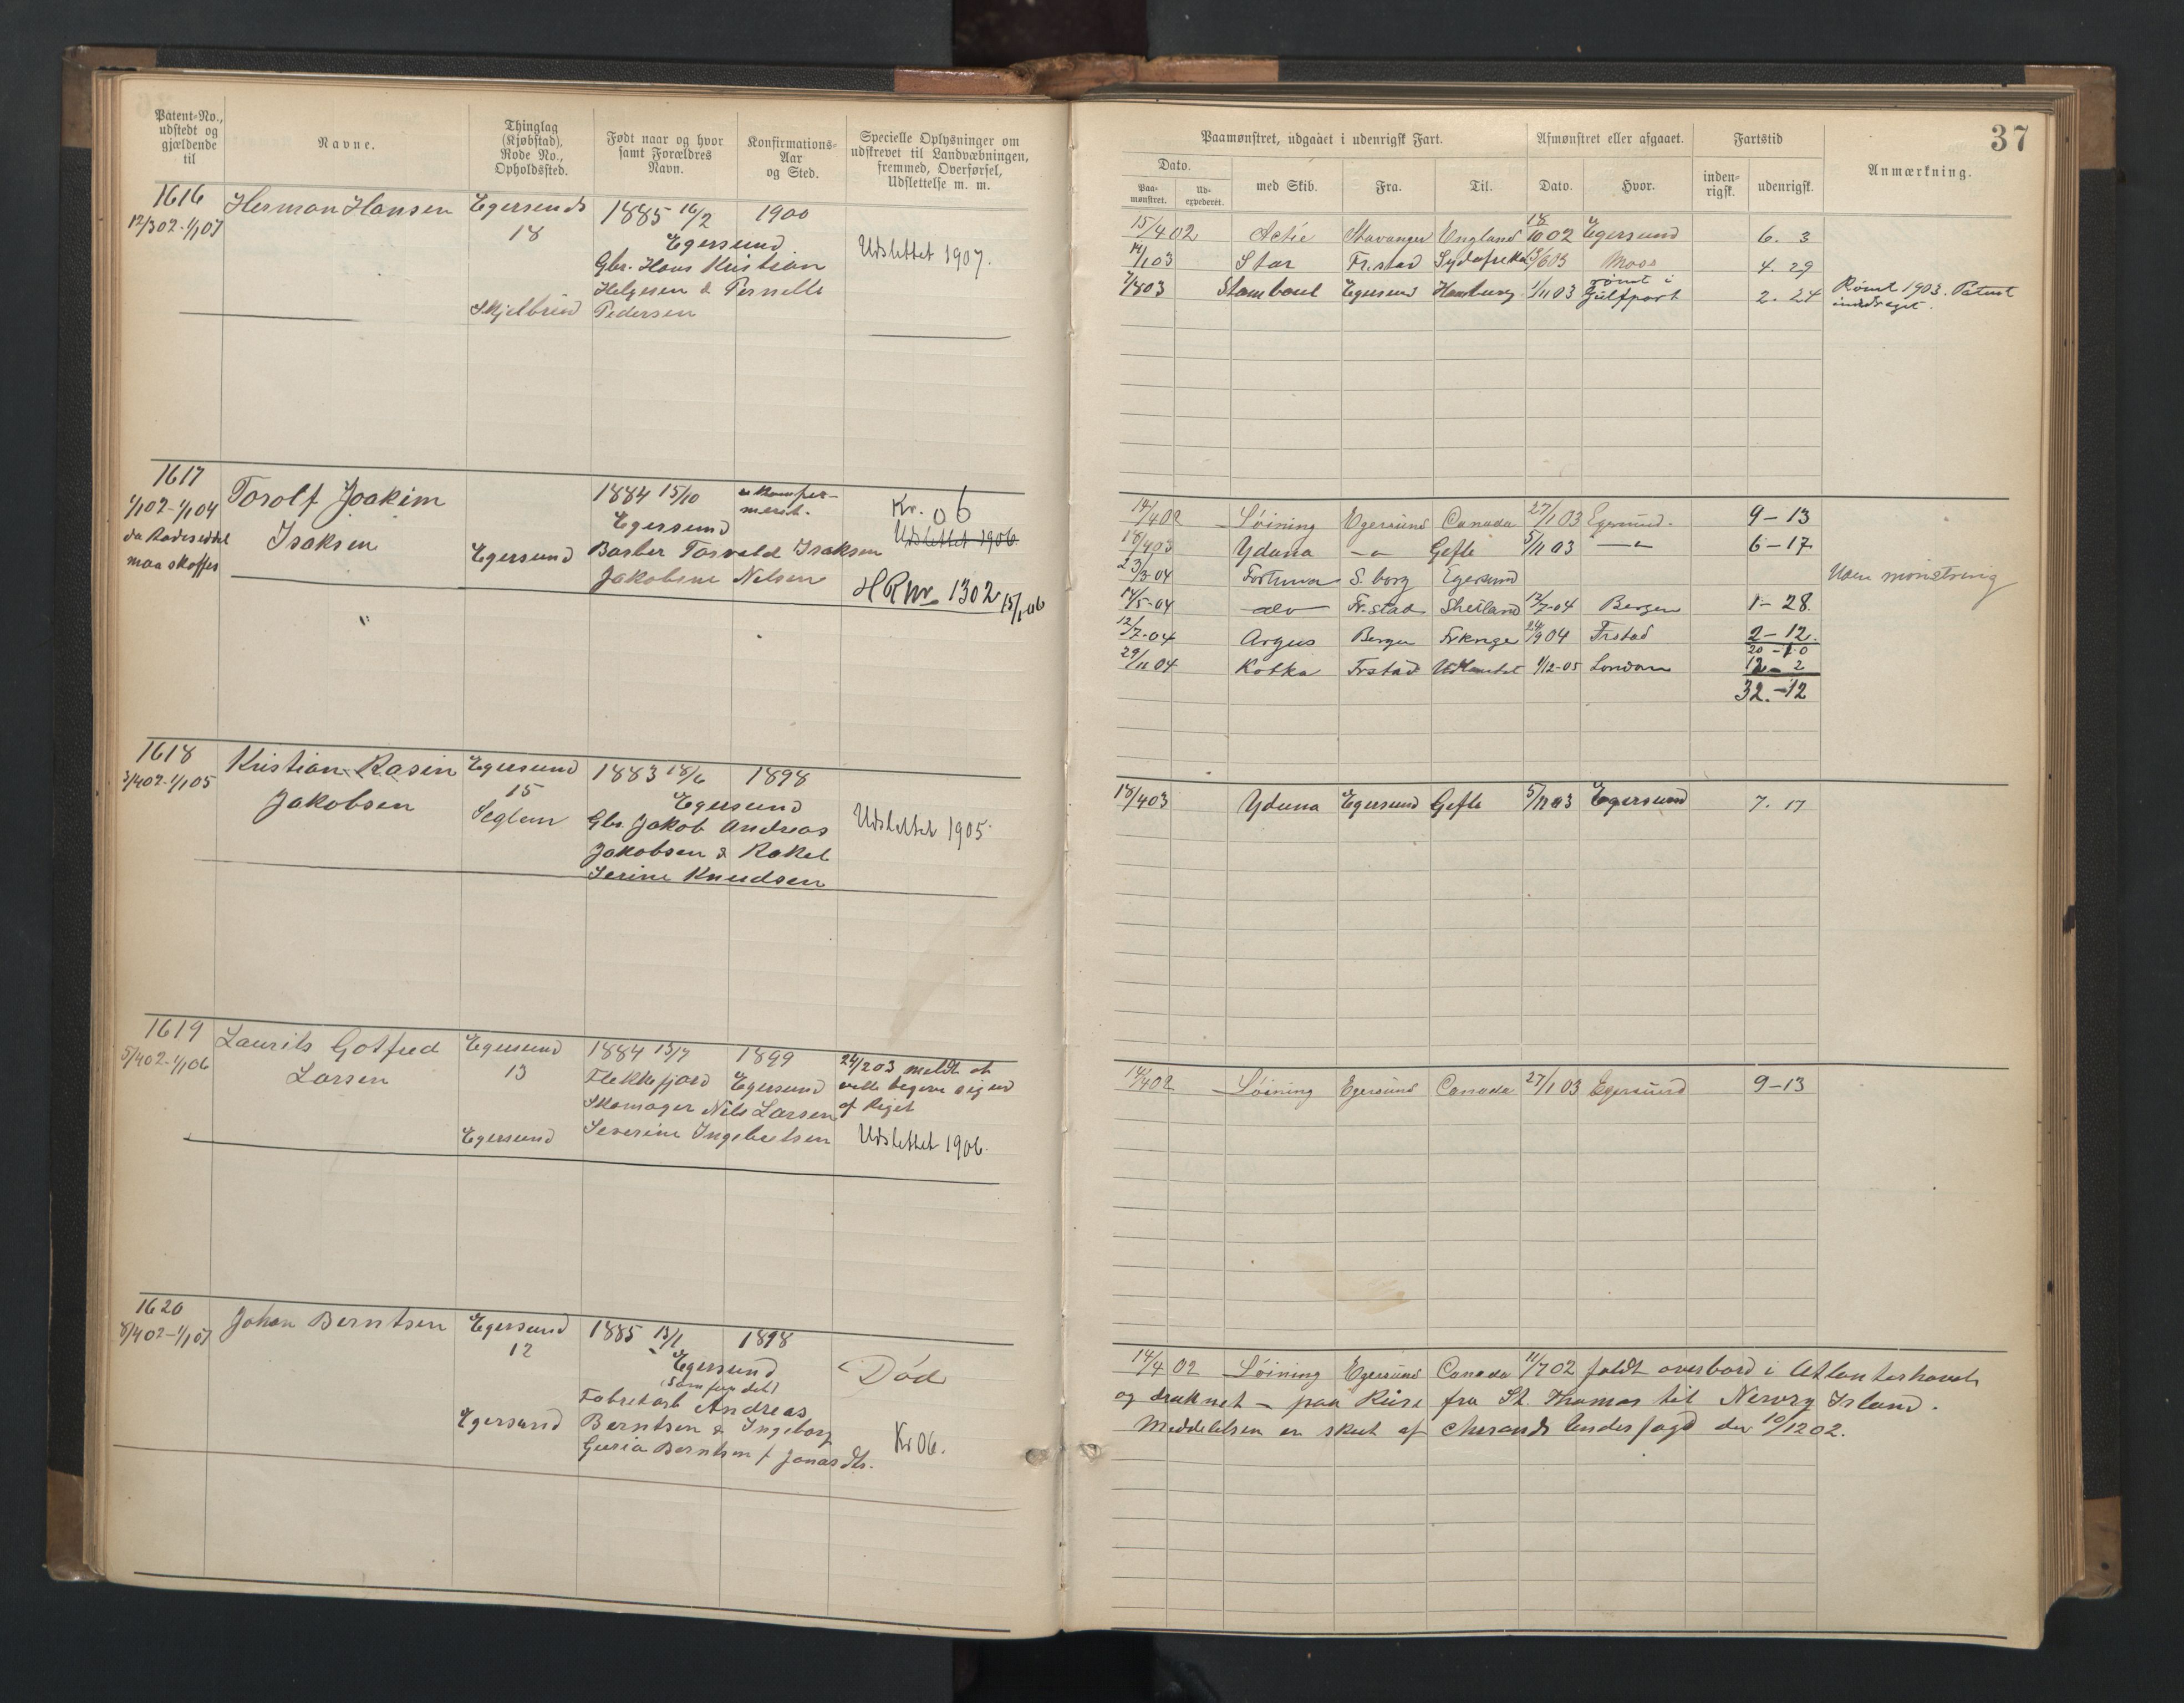 37
Patent-No., udstedt og gjældende til
Navne.
Thinglag (Kjøbstad), Rode No., Opholdssted.
Født naar og hvor samt Forældres Navn.
Konfirmations-Aar og Sted.
Specielle Oplysninger om udskrevet til Landvæbningen, fremmed, Overførsel, Udslettelse m. m.
Paamønstret, udgaaet i udenrigsk Fart.
Afmønstret eller afgaaet.
Fartstid
Anmærkning.
Dato.
Paa-mønstret.
Ud-expederet.
med Skib.
Fra.
Til.
Dato.
Hvor.
inden-rigsk.
udenrigsk.
1616 Herman Hansen Egersund 1885 16/2 1900
12/302-1/107 18 Egersund Udslettet 1907.
Gbr. Hans Kristian
Helgesen & Pernelle
Skjelbred Pedersen
15/402 Actie Stavanger England 18/1002 Egersund 6. 3
14/103 Star Fr.stad Sydafrika 13/603 Moss 4. 29
7/803 Stamboul Egersund Hamburg 1/1103 rømt i Gulfport 2. 24 Rømt 1903. Patent inddraget.
1617 Torolf Joakim 1884 15/10 ukonfermerit.
1/102-1/104 Isaksen Egersund Kr. 06
da Rodeseddel Egersund Barber Torvald Isaksen Udslettet 1906.
maa skaffes Jakobine Nelsen H R Nr. 1302 15/1 06
"
14/402 Løining Egersund Canada 27/103 Egersund. 9-13
18/403 Yduna -"- Gefle 5/1103 -"- 6-17
23/3-04 Fortuna S.borg Egersund Uden mønstring
14/5-04 do Fr.stad Shetland 12/7-04 Bergen 1-28.
12/7-04 Argus Bergen Frkrige 24/904 Frstad 2-12.
20-10
29/1104 Kotka Frstad Udlandet 1/12-05 London 12-2
32.-12
1618 Kristian Rasin Egersund 1883 18/6 1898
3/402-1/105 Jakobsen 15 Egersund
Seglem Gbr. Jakob Andreas Udslettet 1905.
Jakobsen & Rakel
Serine Knudsen
18/403 Yduna Egersund Gefle 5/1103 Egersund 7. 17
1619 Laurits Gotfred Egersund 1884 13/7 1899 24/203 meldt at
5/402-1/106 Larsen 13 Flekkefjord Egersund ville begive sig ud
Skomager Nils Larsen af Riget
Egersund Severine Ingebretsen Udslettet 1906.
14/402 Løining Egersund Canada 27/103 Egersund 9-13
1620 Johan Berntsen Egersund 1885 13/1 1898
8/402-1/107 12 Egersund Død
(Samfundet)
Fabrikarb Andreas
Egersund Berntsen & Ingeborg
Guria Berntsen f Jonasdtr. Kr 06.
14/4 02 Løining Egersund Canada 11/702 faldt overbord i Atlanterhavet
og druknet - paa Reise fra St. Thomas til Island.
Meddelelsen er skeet af Underfogd den 10/1202.